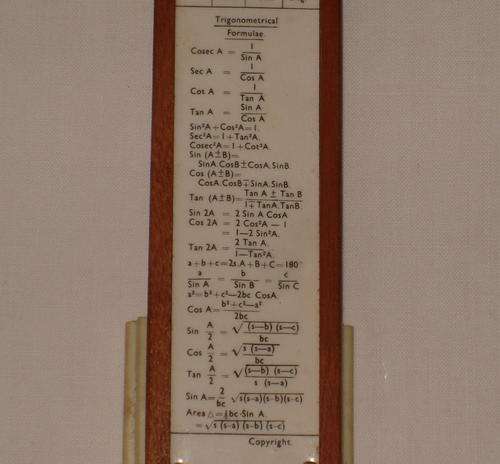 Trigonometrical
Formulae.
Cosec A = 1/Sin A
Sec A = 1/Cos A
Cot A = 1/Tan A
Tan A = Sin A/Cos A
Sin²A+Cos²A=1.
Sec²A=1+Tan²A.
Cosec²A=1+Cot²A.
Sin (A±B)=
SinA.CosB±CosA.SinB.
Cos (A±B)=
CosA.CosB∓SinA.SinB.
Tan (A±B)= Tan A ± Tan B/1∓TanA.TanB
Sin 2A = 2 Sin A CosA
Cos 2A = 2 Cos²A — 1
= 1—2 Sin²A.
Tan 2A = 2 Tan A./1—Tan²A.
a+b+c=2s. A+B+C=180°
a/Sin A = b/Sin B = c/Sin C
a²=b²+c²—2bc CosA.
Cos A= b²+c²—a²/2bc
Sin A/2 = √(s—b) (s—c)/bc
Cos A/2 = √s (s—a)/bc
Tan A/2 = √(s—b) (s—c)/s (s—a)
Sin A= 2/bc √s(s—a)(s—b)(s—c)
Area △=½bc·Sin A.
=√s (s—a) (s—b) (s—c)
Copyright.